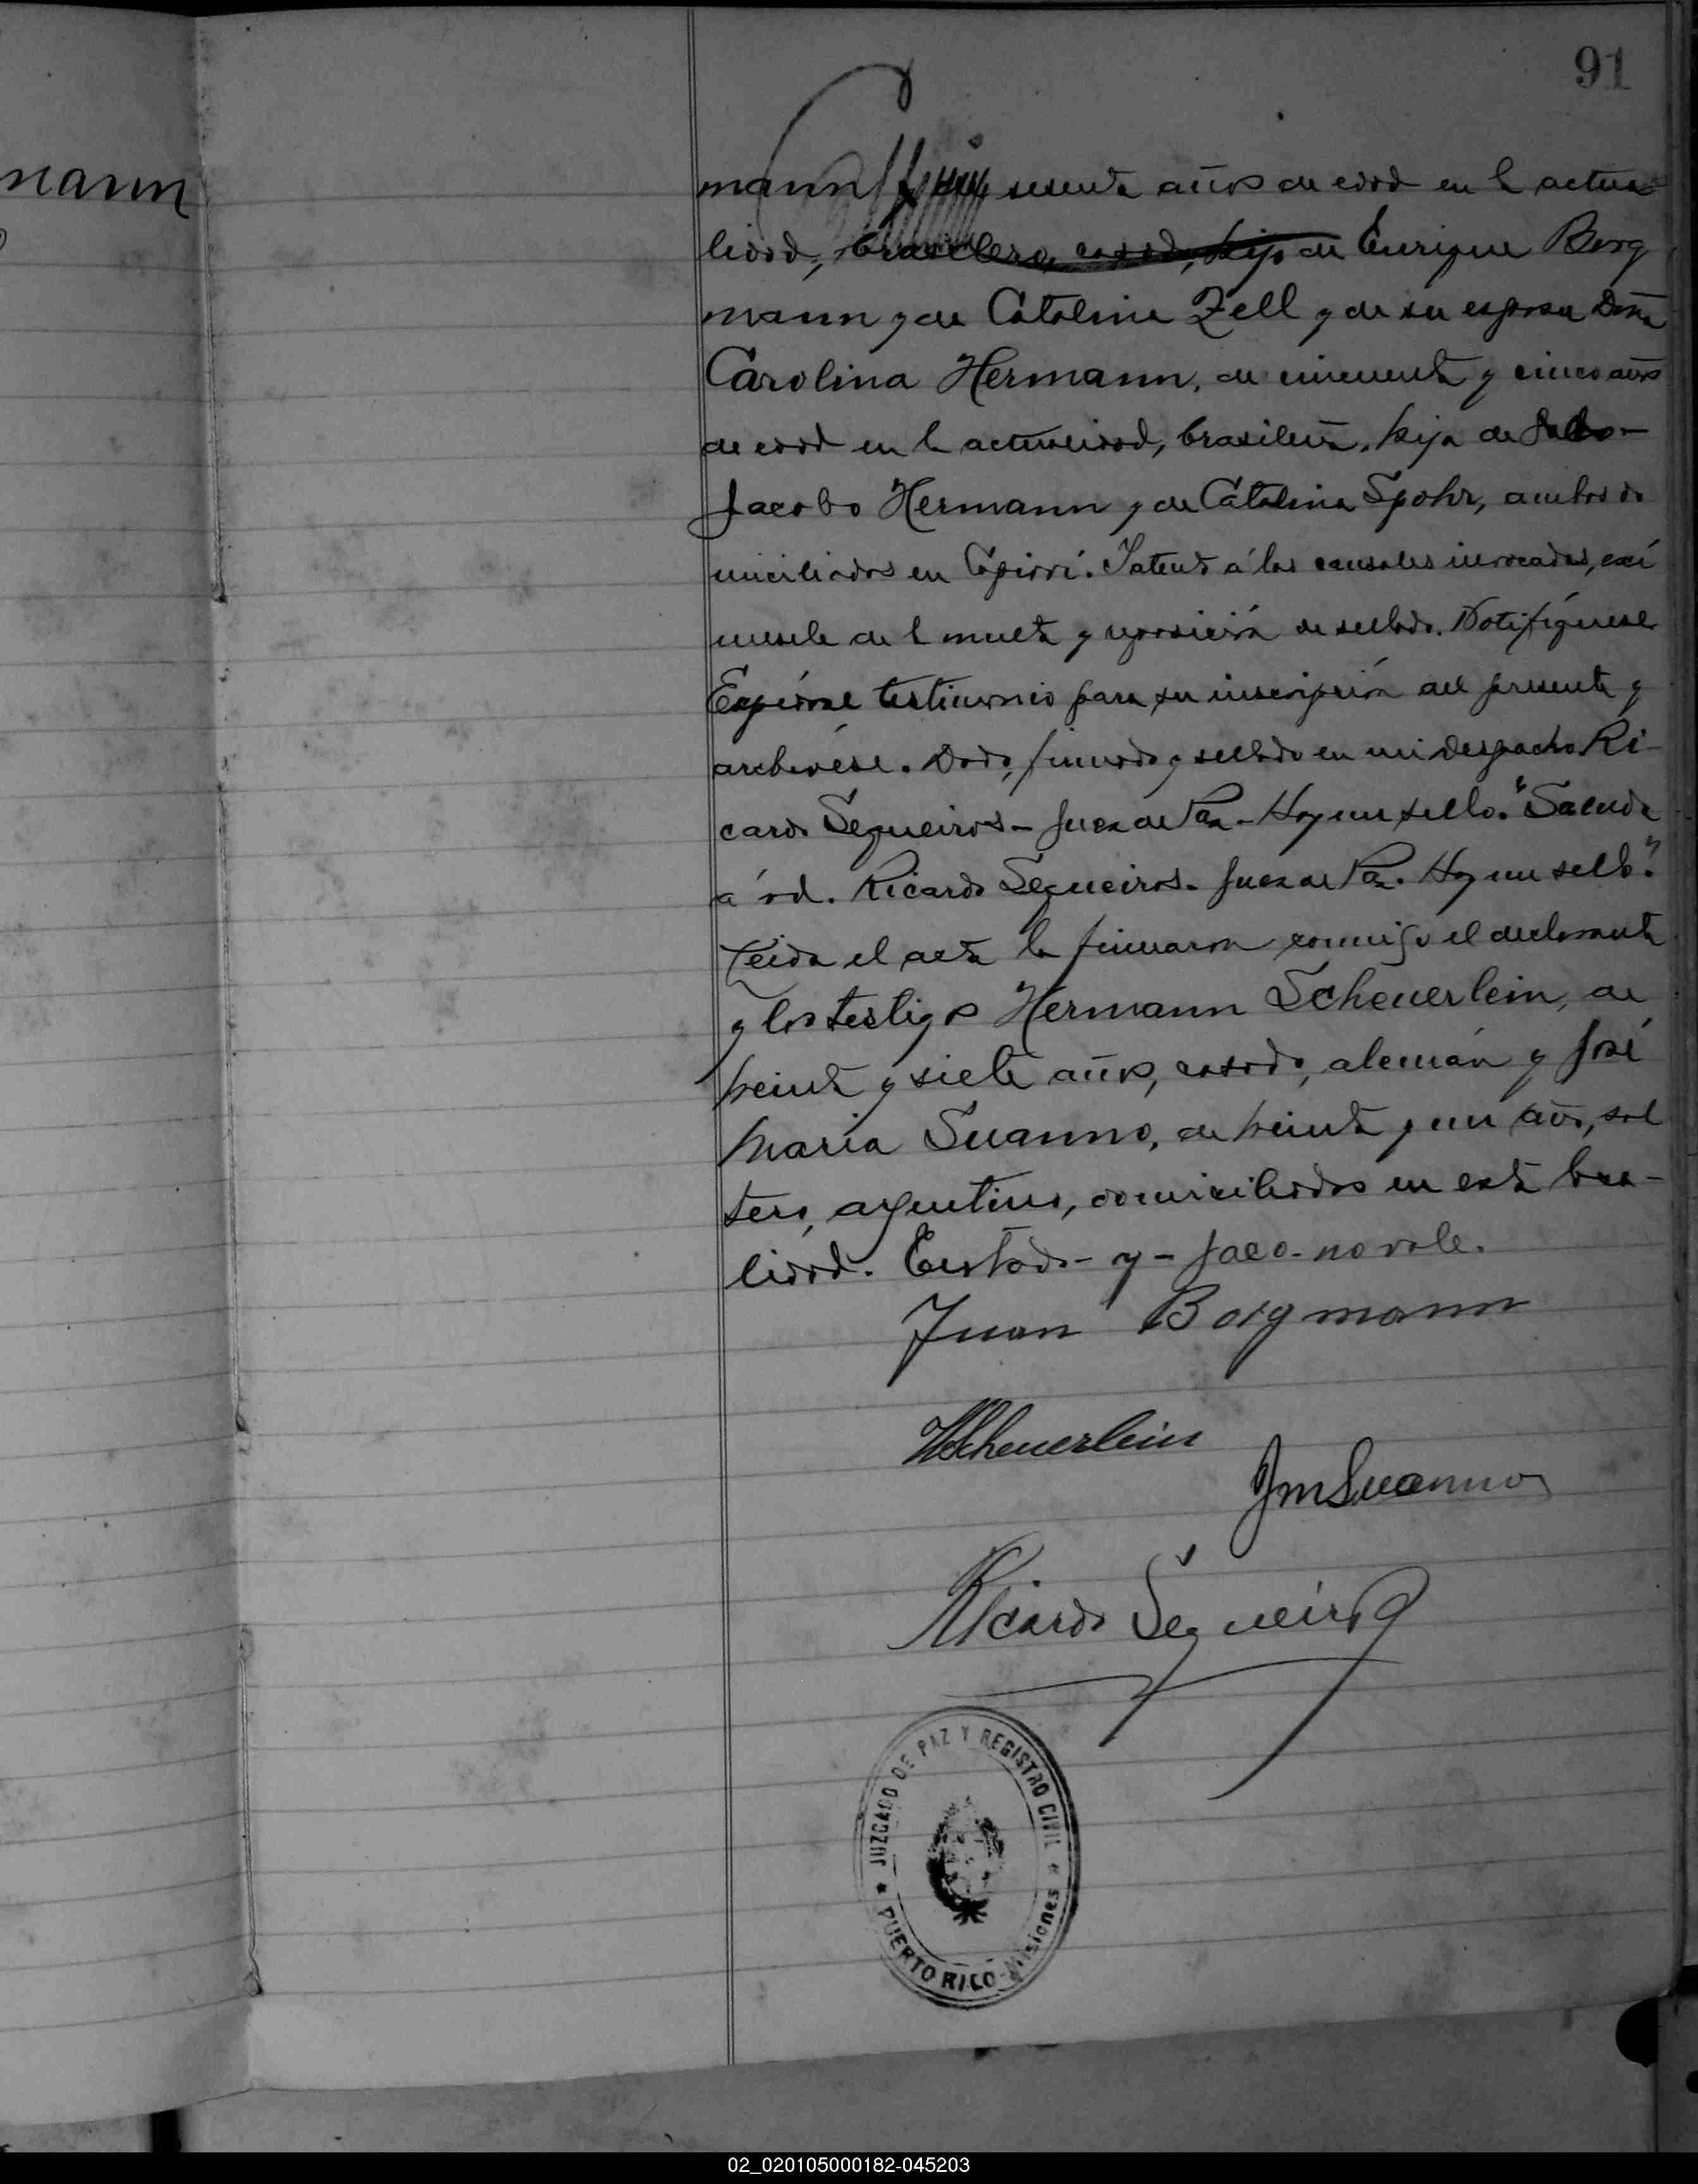 91
mann
mann, de sesenta años de edad en la actua-
lidad, brasilero, casado, hijo de Enrique Borg
mann y de Catalina Zell y de su esposa Doña
Carolina Hermann, de cincuenta y cinco años
de edad en la actualidad, brasilera, hija de
Jacobo Hermann y de Catalina Spohr, ambos do
miciliados en Capioví. Y atento á las causales invocadas, exí
mesele de la multa y reposición de sellado. Notifíquese
Expídase testimonio para su inscripción del presente y
archívese. Dado, firmado y sellado en mi despacho Ri-
cardo Segueiros - Juez de Paz - Hay un sello. "Saluda
á Vd. Ricardo Segueiros. Juez de Paz. Hay un sello."
Leída el acta la firmaron conmigo el declarante
y los testigos Hermann Scheuerlein, de
treinta y siete años, casado, alemán y José
María Suanno, de treinta y un años, sol
tero, argentino, domiciliados en esta loca-
lidad. Testado - y - Jaco - no vale.
Juan Borgmann
HScheuerlein
JmSuanno
Ricardo Segueiros
JUZGADO DE PAZ Y REGISTRO CIVIL
PUERTO RICO - Misiones
02_020105000182-045203